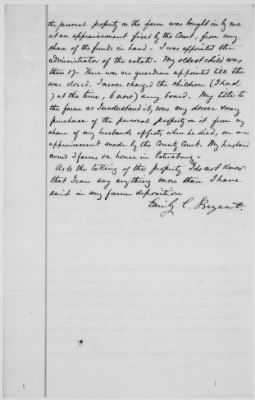 the personal property on the farm was bought in by me
at an appraisement fixed by the Court, from my
share of the funds in hand - I was appointed the
administrator of the estate. My oldest child was
then 17. There was no guardian appointed till the
was closed. I never charged the children, (I had
7 at the time, 6 now) any board. My title to
the farm as I understand it, was my dower & my
purchase of the personal property on it from my
share of my husbands effects, when he died, on an
appraisement made by the County Court. My husband
owned 3 farms & a house in
As to the taking of the property I do not know
that I can say anything more than I have
said in my former deposition
Emily C. Bryant